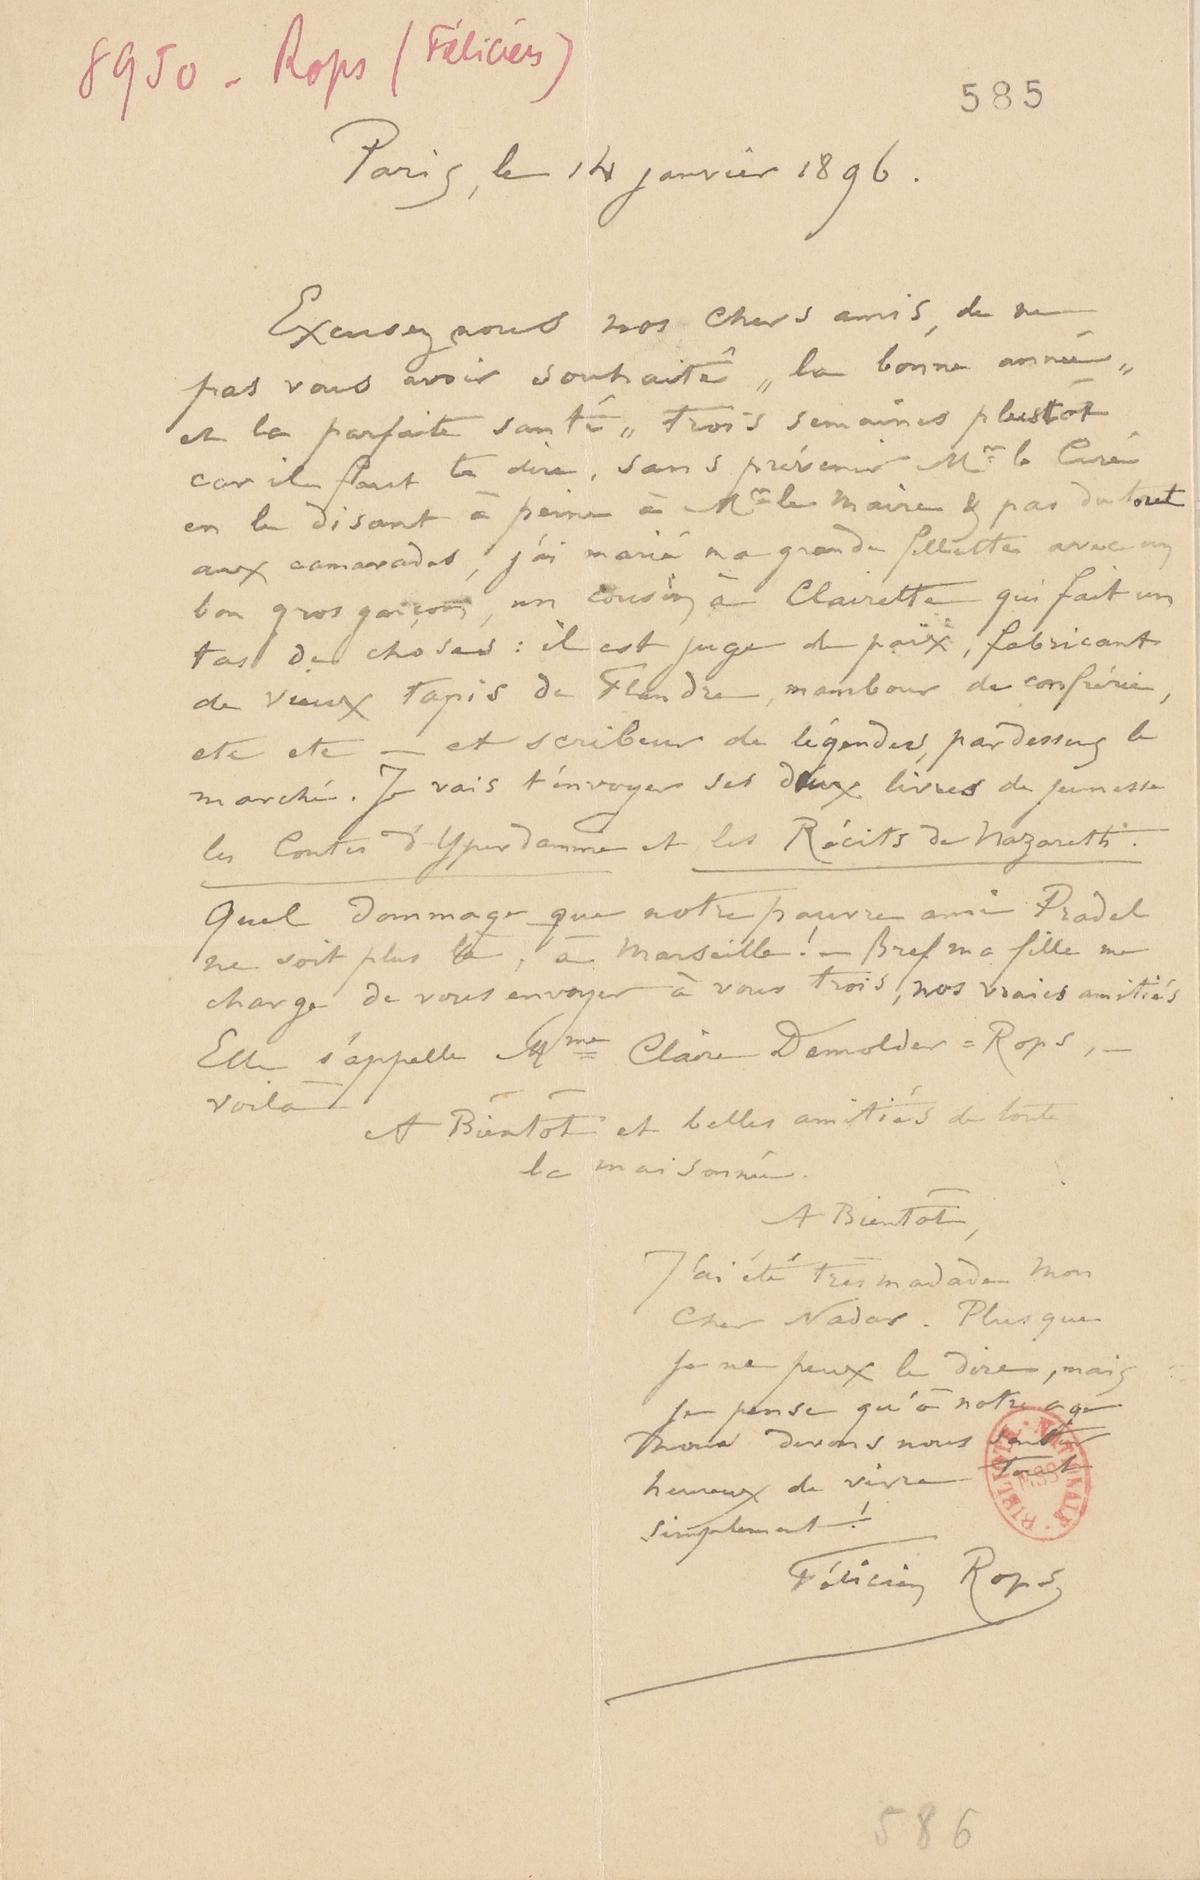 8950 - Rops (Félicien)
585
Paris, le 14 janvier 1896.
Excusez nous nos chers amis, de ne
pas vous avoir souhaité „ la bonne année „
et la parfaite santé „ trois semaines plustôt
car il faut te dire, sans prévenir Mr le Curé
en le disant à peine à Mr le Maire & pas du tout
aux camarades, j'ai marié ma grande fillette avec un
bon gros garçon, un cousin à Clairette qui fait un
tas de choses : il est juge de paix, fabricant
de vieux tapis de Flandre, mambour de confrérie,
etc etc — et scribeur de légendes, pardessus le
marché. Je vais t'envoyer ses deux livres de jeunesse
les Contes d'Yperdamme et les Récits de Nazareth.
Quel dommage que notre pauvre ami Pradel
ne soit plus là, à Marseille ! — Bref ma fille me
charge de vous envoyer à vous trois, nos vraies amitiés
Elle s'appelle Mme Claire Demolder=Rops, —
voilà
A Bientôt et belles amitiés de toute
la maisonnée.
A Bientôt,
J'ai été très madade mon
cher Nadar. Plus que
je ne peux le dire, mais
je pense qu'à notre age
nous devons nous sentir
heureux de vivre tout
simplement !
Félicien Rops
BIBLIOTH. NATIONALE
586